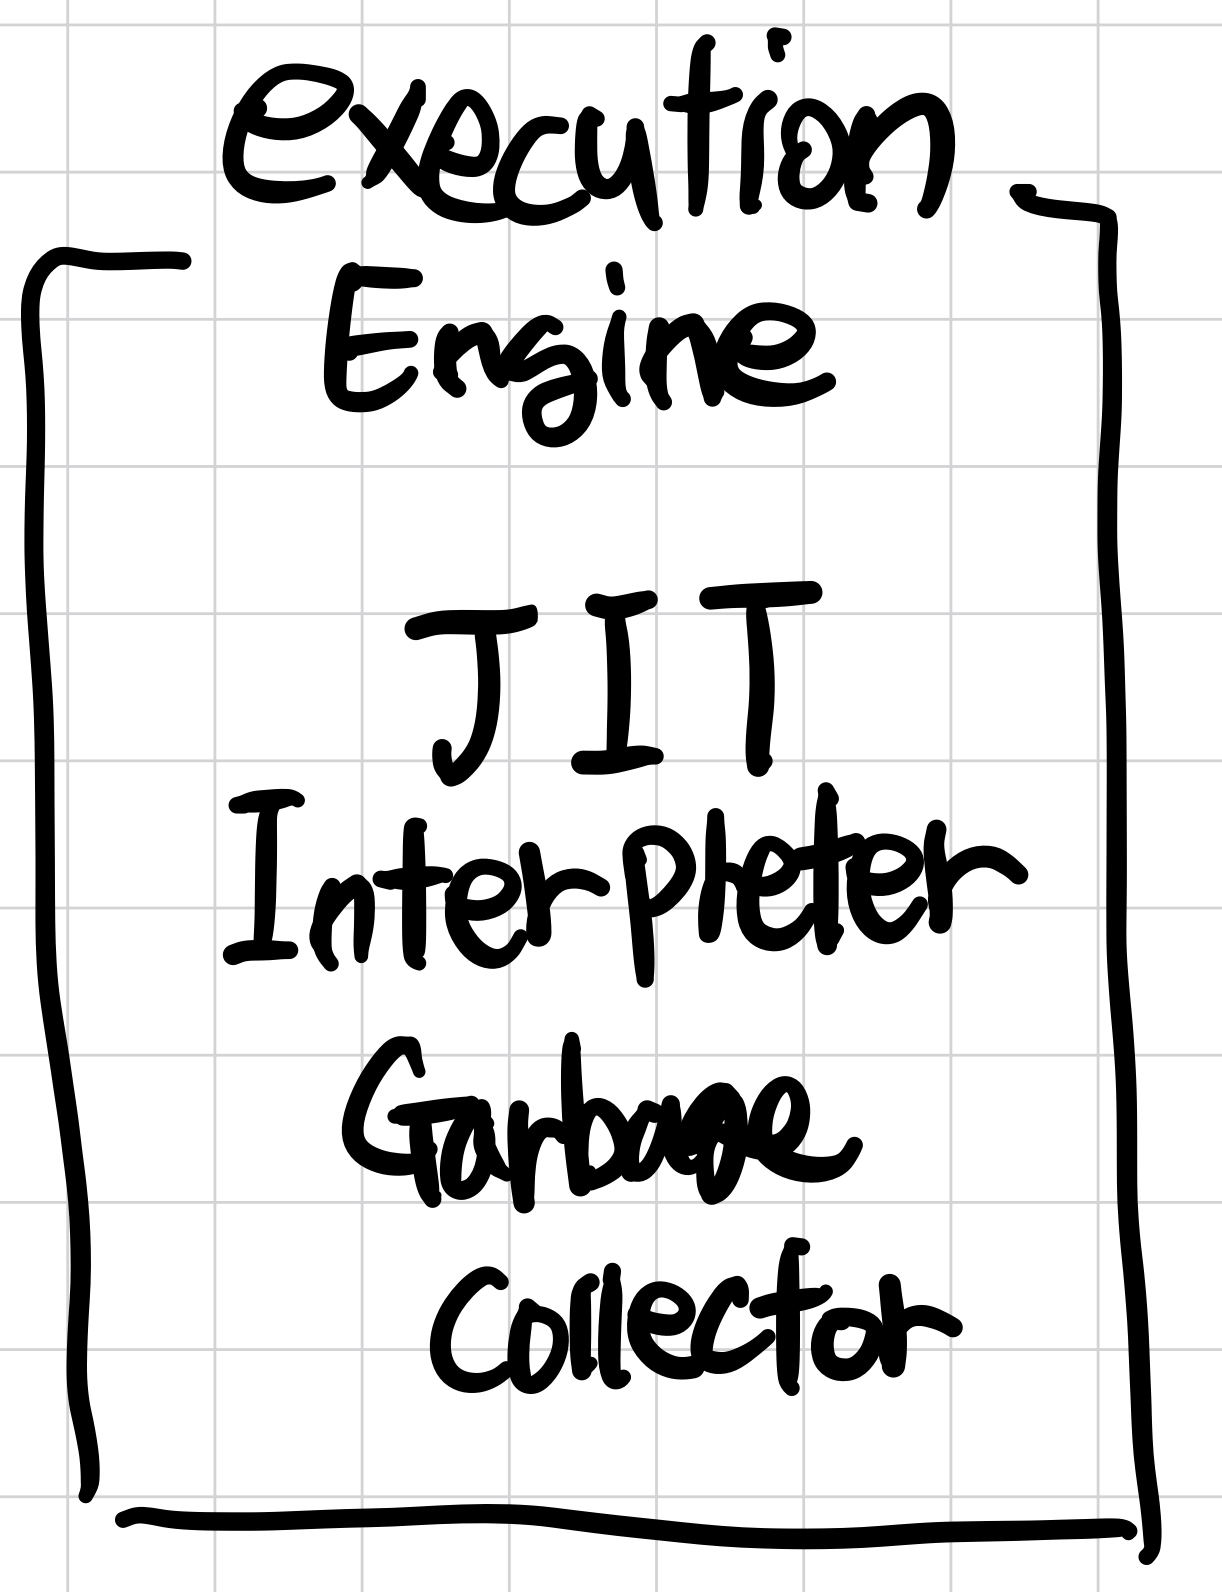 execution
Engine
JIT
Interpreter
Garbage
Collector